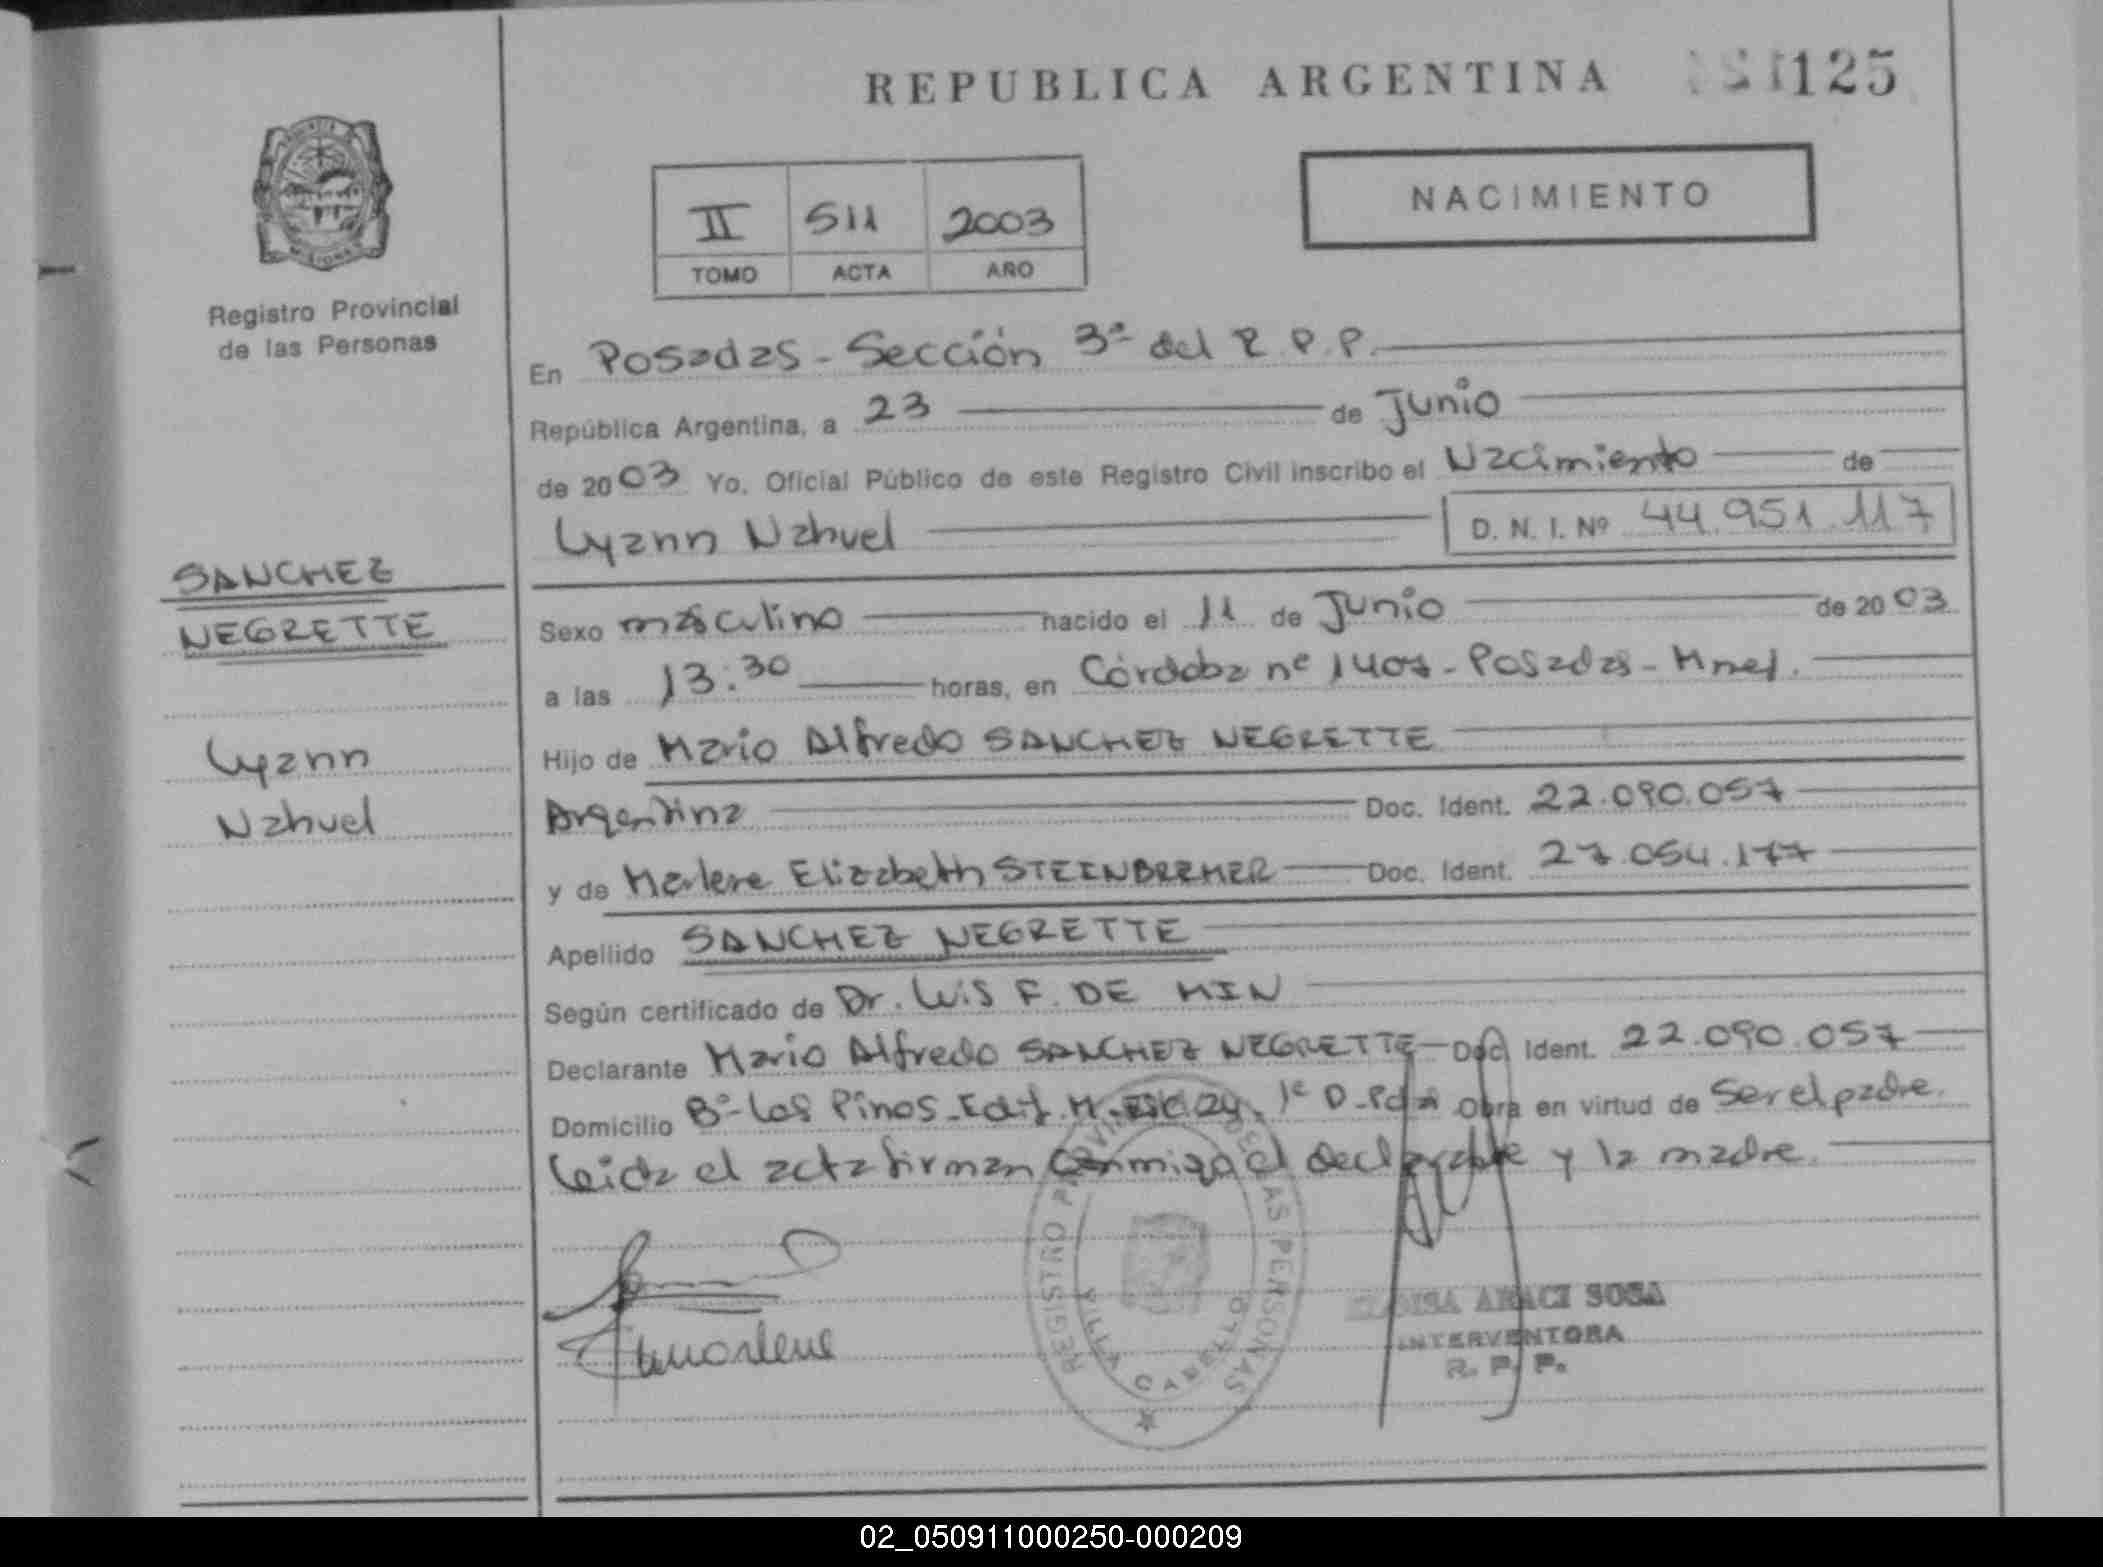 REPUBLICA ARGENTINA 125
NACIMIENTO
II 511 2003
TOMO ACTA AÑO
Registro Provincial
de las Personas
En Posadas - Sección 3ª del R. P. P.
República Argentina, a 23 de Junio
de 2003 Yo, Oficial Público de este Registro Civil inscribo el Nacimiento de
Lyann Nahuel D. N. I. Nº 44.951.117
SANCHEZ
NEGRETTE
Lyann
Nahuel
Sexo masculino nacido el 11 de Junio de 2003
a las 13:30 horas, en Córdoba nº 1407 - Posadas - Mnes.
Hijo de Mario Alfredo SANCHEZ NEGRETTE
Argentina Doc. Ident. 22.090.057
y de Marlene Elizabeth Doc. Ident. 27.054.177
Apellido SANCHEZ NEGRETTE
Según certificado de Dr. Luis F. DE MIN
Declarante Mario Alfredo SANCHEZ NEGRETTE Doc. Ident. 22.090.057
Domicilio Bº Los Pinos - Edif. M - Esc. 24 - 1º D - Pdas Obra en virtud de ser el padre.
Leida el acta firman conmigo el declarante y la madre.
Marlene
REGISTRO PROVINCIAL DE LAS PERSONAS
VILLA CABELLO
ARACI SOSA
INTERVENTORA
R. P. P.
02_050911000250-000209